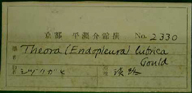 京都 平瀬介類館 No. 2330
Theora (Endopleura) lubrica
Gould
シヅクガヒ